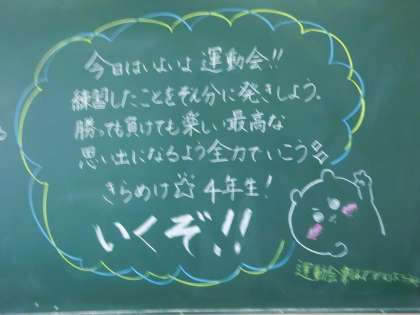 今日はいよいよ運動会!!
練習したことをぞん分に発きしよう。
勝っても負けても楽しい最高な
思い出になるよう全力でいこう
きらめけ☆4年生!
いくぞ!!
運動会